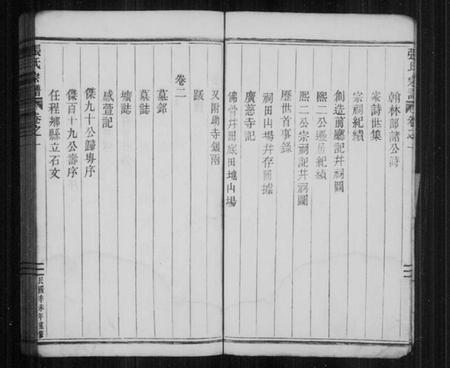 張氏宗譜 卷之一
翰林部諸公詩
家詩世集
宗祠紀績
創造前廳記幷祠圖
熙二公遷居紀績
熙二公宗祠記幷祠圖
歷世首事錄
祠田山場幷存圖據
廣慈寺記
佛骨幷開底田地山場
又附助寺銀兩
跋
卷二
墓郊
墓誌
壙誌
感萱記
傑九十公歸粤序
傑百十九公壽序
任程鄉縣立石文
張氏宗譜 卷之一
民國辛未年重修